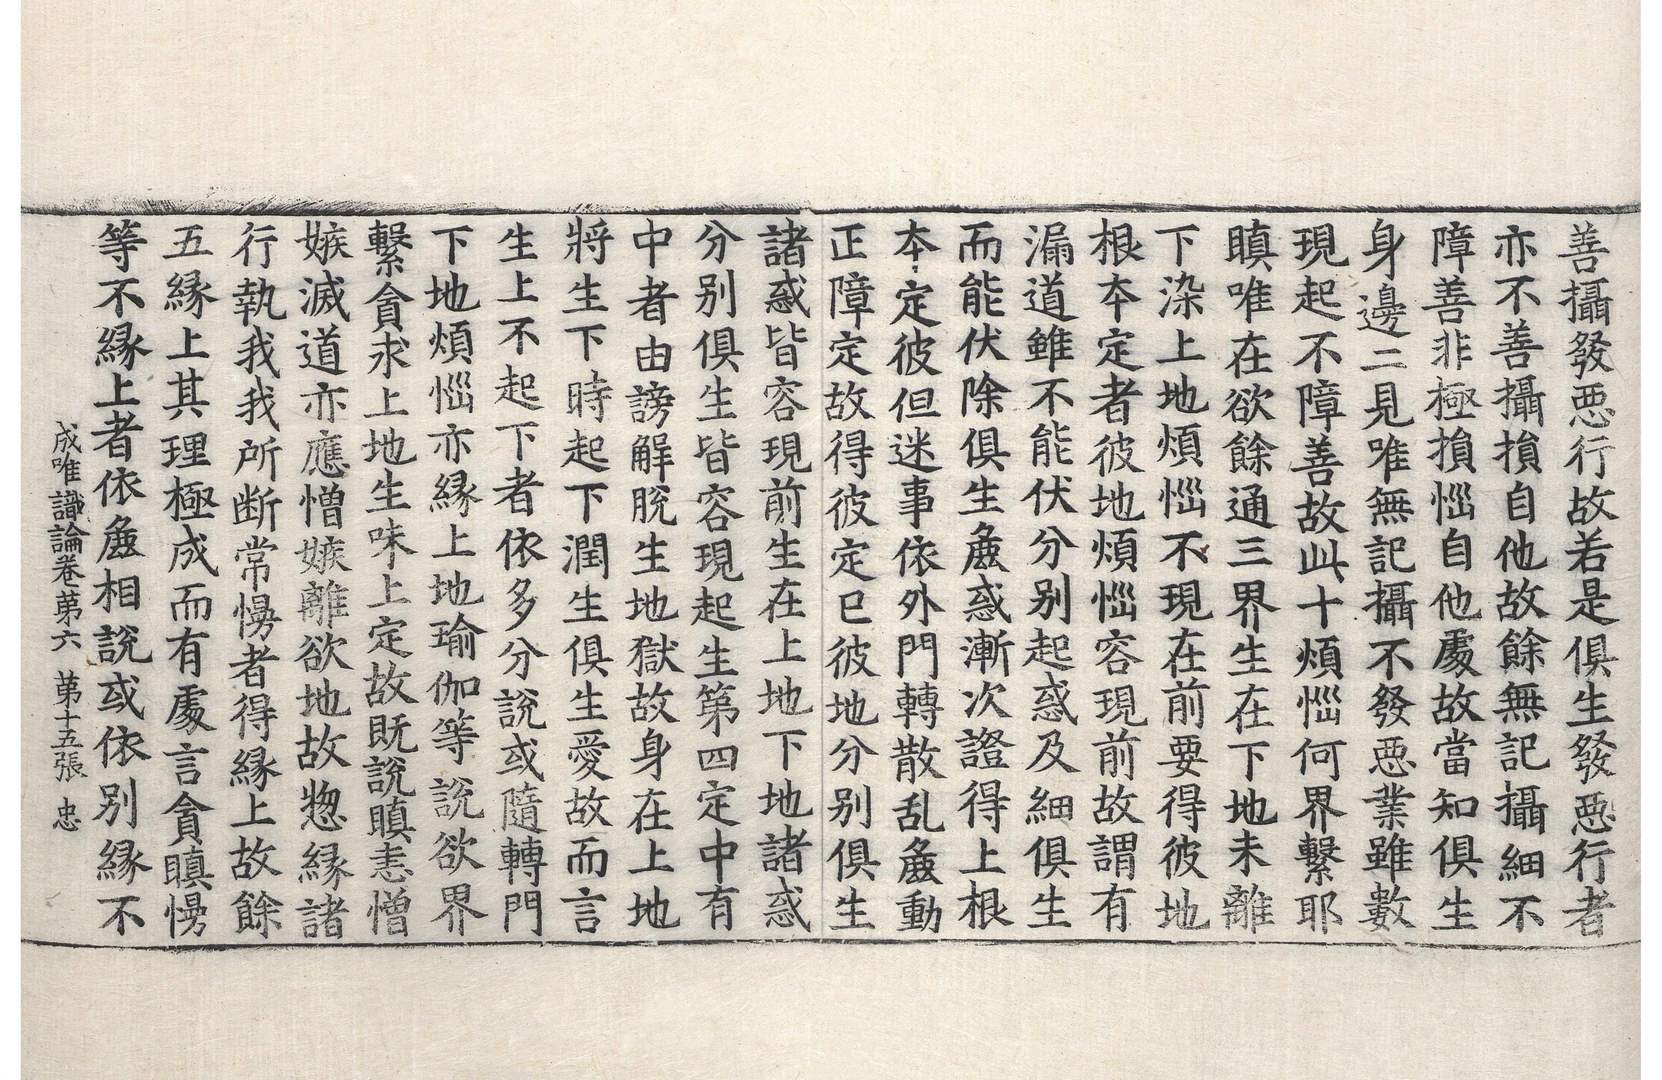 善攝發惡行故若是俱生發惡行者
亦不善攝損自他故餘無記攝細不
障善非極損惱自他處故當知俱生
身邊二見唯無記攝不發惡業雖數
現起不障善故此十煩惱何界繫耶
瞋唯在欲餘通三界生在下地未離
下染上地煩惱不現在前要得彼地
根本定者彼地煩惱容現前故謂有
漏道雖不能伏分別起惑及細俱生
而能伏除俱生麁惑漸次證得上根
本定彼但迷事依外門轉散乱麁動
正障定故得彼定已彼地分別俱生
諸惑皆容現前生在上地下地諸惑
分別俱生皆容現起生第四定中有
中者由謗解脫生地獄故身在上地
將生下時起下潤生俱生愛故而言
生上不起下者依多分說或隨轉門
下地煩惱亦緣上地瑜伽等說欲界
繫貪求上地生味上定故既說瞋恚憎
嫉滅道亦應憎嫉離欲地故惣緣諸
行執我我所断常慢者得緣上故餘
五緣上其理極成而有處言貪瞋慢
等不緣上者依麁相說或依別緣不
成唯識論卷第六　第十五張　忠